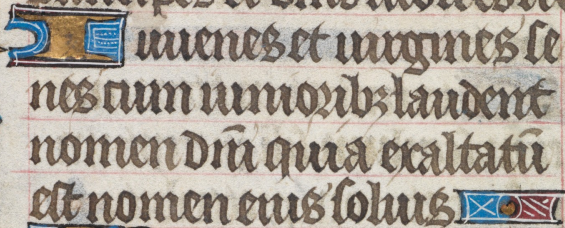 Iuuenes et uirgines se
nes cum iunioribꝫ laudent
nomen dñi quia exaltatũ
est nomen eius solius